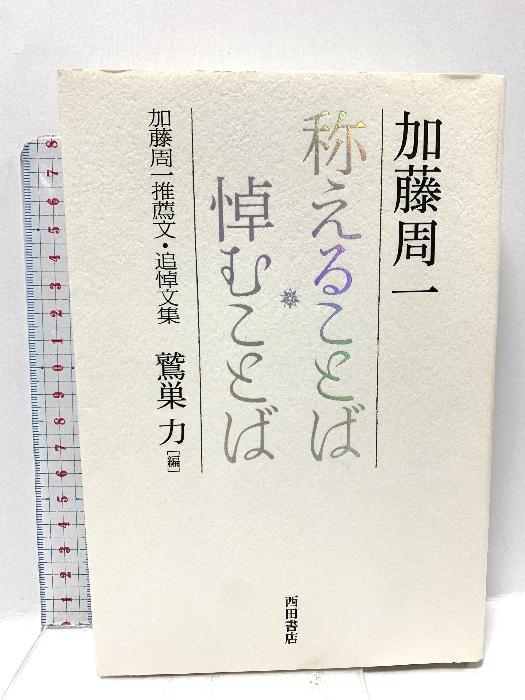 加藤周一
称えることば
悼むことば
加藤周一推薦文・追悼文集 鷲巣 力[編]
西田書店
8
7
6
5
4
3
2
1
0
9
8
7
6
5
4
3
2
1
0